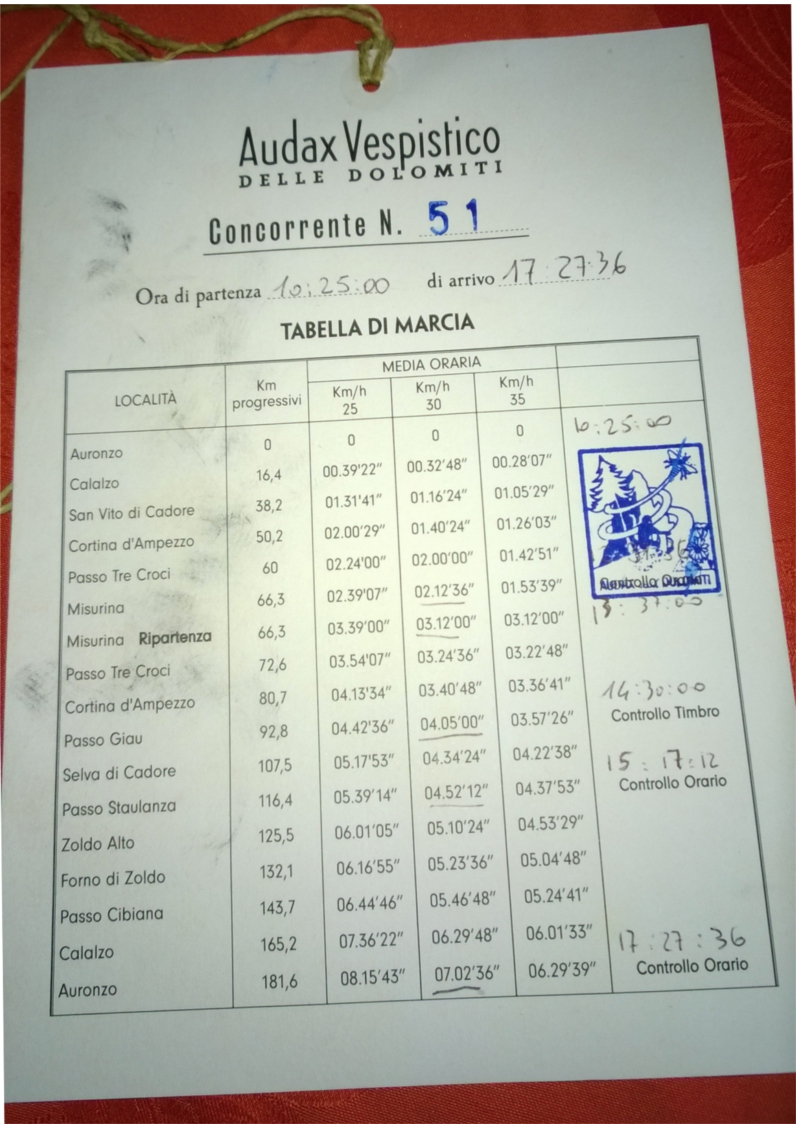 Audax Vespistico
DELLE DOLOMITI
Concorrente N. 51
Ora di partenza 10:25:00 di arrivo 17:27:36
TABELLA DI MARCIA
LOCALITÀ Km progressivi MEDIA ORARIA
Km/h 25 Km/h 30 Km/h 35
Auronzo 0 0 0 0 10:25:00
Calalzo 16,4 00.39'22" 00.32'48" 00.28'07"
San Vito di Cadore 38,2 01.31'41" 01.16'24" 01.05'29"
Cortina d'Ampezzo 50,2 02.00'29" 01.40'24" 01.26'03"
Passo Tre Croci 60 02.24'00" 02.00'00" 01.42'51"
Misurina 66,3 02.39'07" 02.12'36" 01.53'39"
Misurina Ripartenza 66,3 03.39'00" 03.12'00" 03.12'00" 13:37:00
Passo Tre Croci 72,6 03.54'07" 03.24'36" 03.22'48"
Cortina d'Ampezzo 80,7 04.13'34" 03.40'48" 03.36'41" 14:30:00
Passo Giau 92,8 04.42'36" 04.05'00" 03.57'26" Controllo Timbro
Selva di Cadore 107,5 05.17'53" 04.34'24" 04.22'38" 15:17:12
Passo Staulanza 116,4 05.39'14" 04.52'12" 04.37'53" Controllo Orario
Zoldo Alto 125,5 06.01'05" 05.10'24" 04.53'29"
Forno di Zoldo 132,1 06.16'55" 05.23'36" 05.04'48"
Passo Cibiana 143,7 06.44'46" 05.46'48" 05.24'41"
Calalzo 165,2 07.36'22" 06.29'48" 06.01'33" 17:27:36
Auronzo 181,6 08.15'43" 07.02'36" 06.29'39" Controllo Orario